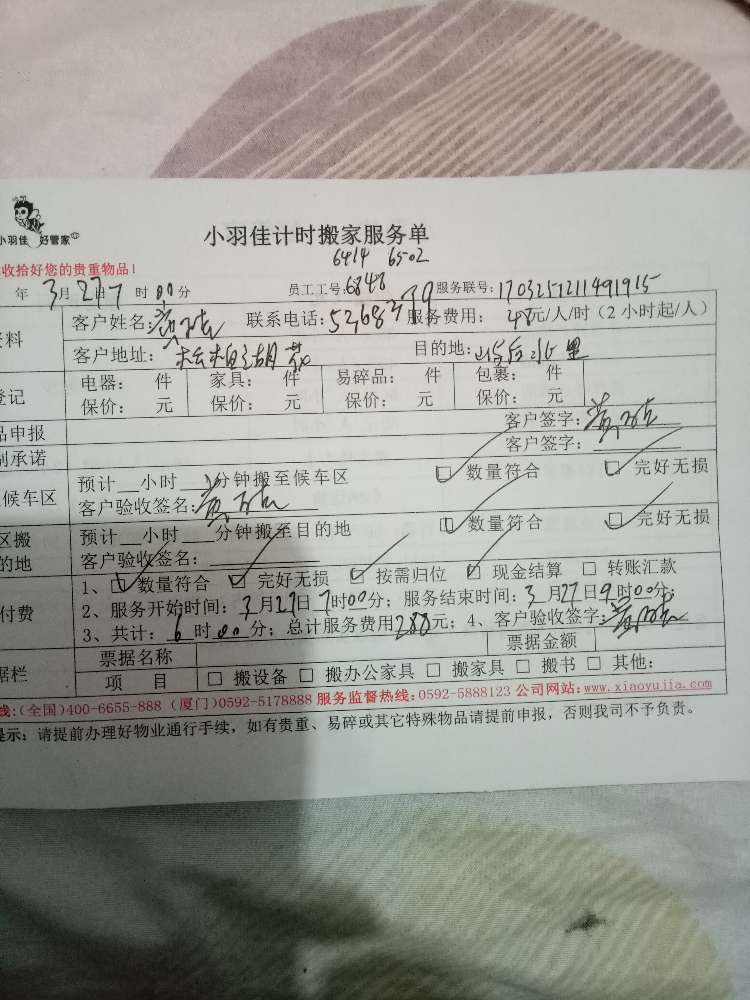 小羽佳 好管家
小羽佳计时搬家服务单
6414 6502
收拾好您的贵重物品！
年3月27日7时00分 员工工号:6848 服务联号:1703251211491915
客户姓名: 联系电话: 服务费用: 48元/人/时（2小时起/人）
客户地址: 目的地:
登记 电器: 件 家具: 件 易碎品: 件 包裹: 件
保价: 元 保价: 元 保价: 元 保价: 元
品申报 客户签字:
制承诺 客户签字:
候车区 预计__小时__分钟搬至候车区 数量符合 完好无损
客户验收签名:
区搬 预计__小时__分钟搬至目的地 数量符合 完好无损
的地 客户验收签名:
1、 数量符合 完好无损 按需归位 现金结算 转账汇款
付费 2、服务开始时间: 3月27日7时00分; 服务结束时间: 3月27日9时00分
3、共计: 6时00分; 总计服务费用288元; 4、客户验收签字:
据栏 票据名称 票据金额
项 目 搬设备 搬办公家具 搬家具 搬书 其他:
线:(全国)400-6655-888 (厦门)0592-5178888 服务监督热线:0592-5888123 公司网站:www.xiaoyujia.com
提示: 请提前办理好物业通行手续，如有贵重、易碎或其它特殊物品请提前申报，否则我司不予负责。